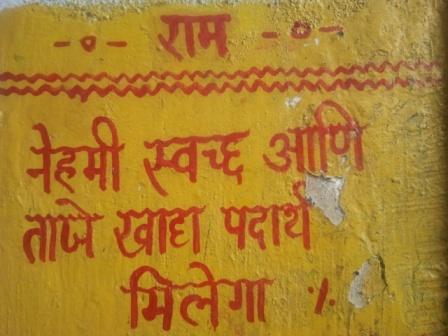 -०- राम -०-
नेहमी स्वच्छ आणि
ताजे खाद्य पदार्थ
मिलेगा ٪